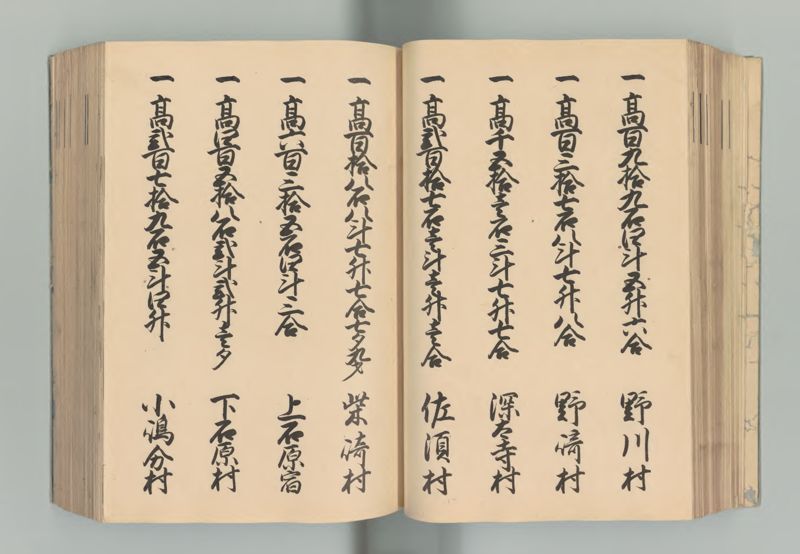 一 高百九拾九石四斗五升六合 野川村
一 高百三拾七石八斗七升八合 野﨑村
一 高千五拾壱石三斗七升七合 深大寺村
一 高弐百拾七石壱斗壱升壱合 佐須村
一 高百拾八石八斗七升七合七夕九才 柴﨑村
一 高六百三拾五石四斗三合 上石原宿
一 高四百五拾八石弐斗弐升壱夕 下石原村
一 高弐百七拾九石五斗四升 小嶋分村